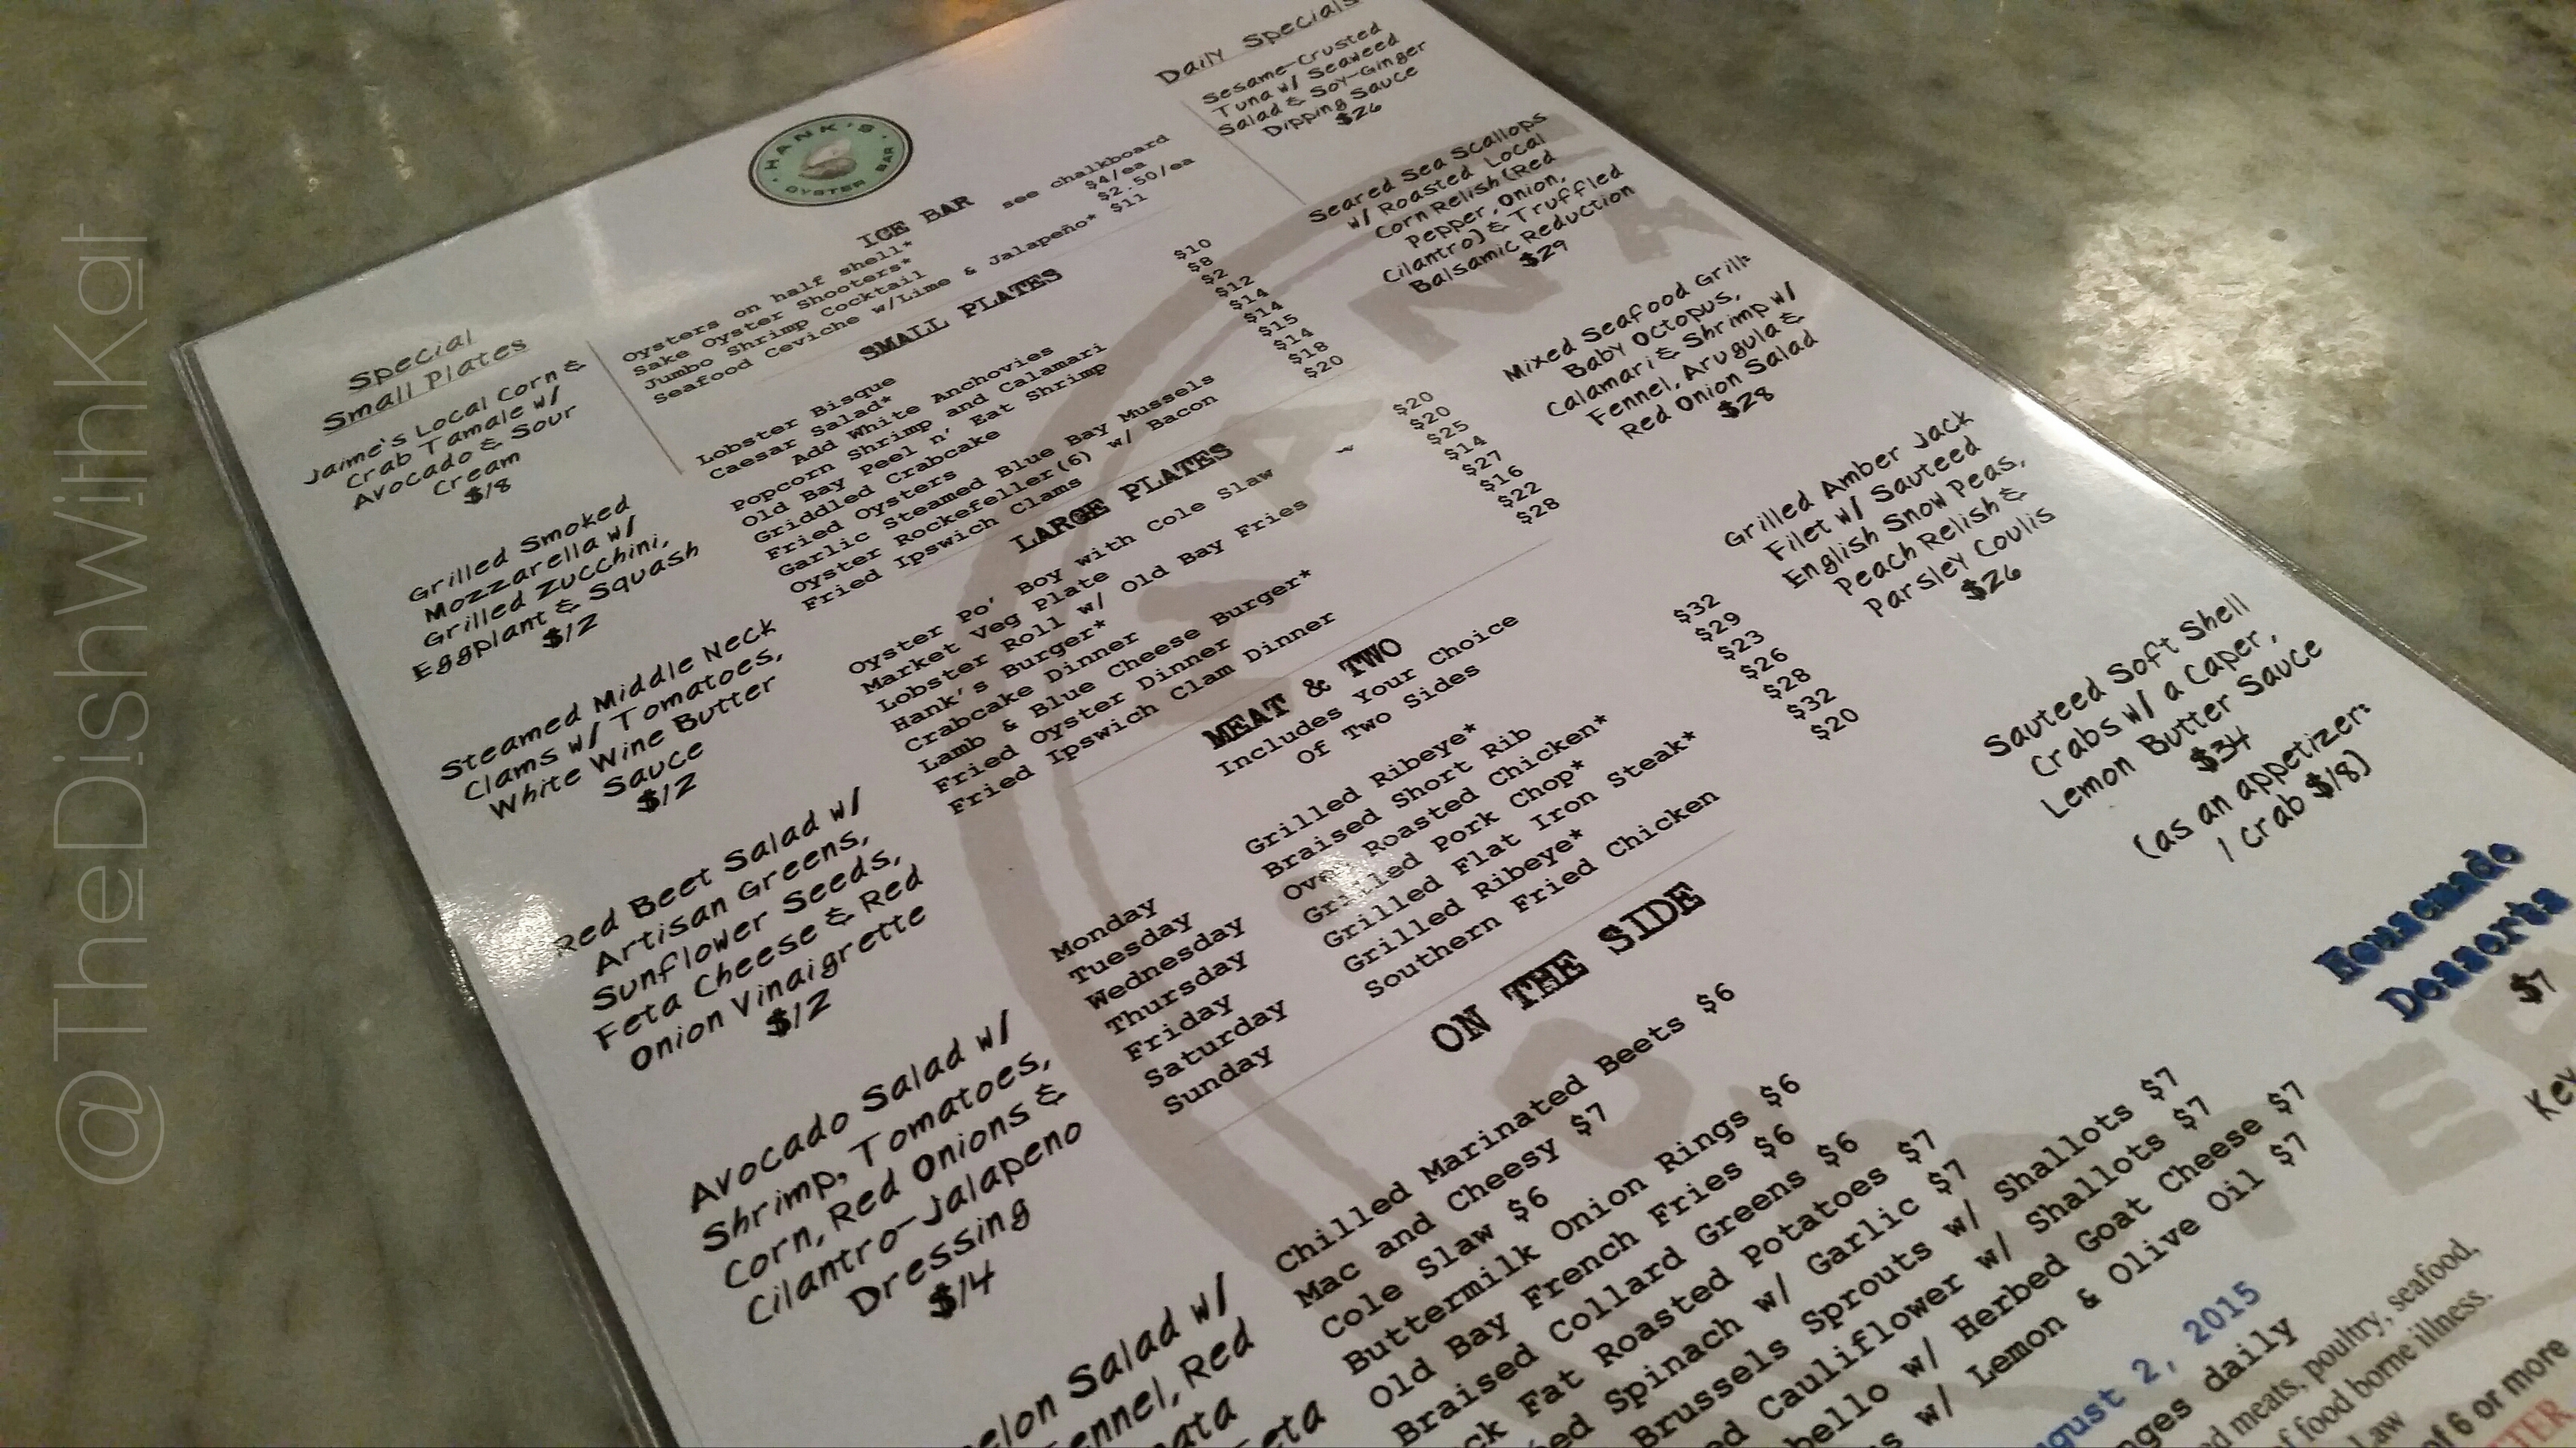 @TheDishWithKat
HANK'S
OYSTER BAR
Special
Small Plates
Jaime's Local Corn &
Crab Tamale w/
Avocado & Sour
Cream
$18
Grilled Smoked
Mozzarella w/
Grilled Zucchini,
Eggplant & Squash
$12
Steamed Middle Neck
Clams w/ Tomatoes,
White Wine Butter
Sauce
$12
Red Beet Salad w/
Artisan Greens,
Sunflower Seeds,
Feta Cheese & Red
Onion Vinaigrette
$12
Avocado Salad w/
Shrimp, Tomatoes,
Corn, Red Onions &
Cilantro-Jalapeno
Dressing
$14
Salad w/
Red
ICE BAR
Oysters on half shell* see chalkboard
Sake Oyster Shooters* $4/ea
Jumbo Shrimp Cocktail $2.50/ea
Seafood Ceviche w/Lime & Jalapeño* $11
SMALL PLATES
Lobster Bisque $10
Caesar Salad* $8
Add White Anchovies $2
Popcorn Shrimp and Calamari $12
Old Bay Peel n' Eat Shrimp $14
Griddled Crabcake $14
Fried Oysters $15
Garlic Steamed Blue Bay Mussels $14
Oyster Rockefeller(6) w/ Bacon $18
Fried Ipswich Clams $20
LARGE PLATES
Oyster Po' Boy with Cole Slaw $20
Market Veg Plate $20
Lobster Roll w/ Old Bay Fries $25
Hank's Burger* $14
Crabcake Dinner $27
Lamb & Blue Cheese Burger* $16
Fried Oyster Dinner $22
Fried Ipswich Clam Dinner $28
MEAT & TWO
Includes Your Choice
Of Two Sides
Monday Grilled Ribeye* $32
Tuesday Braised Short Rib $29
Wednesday Oven Roasted Chicken* $23
Thursday Grilled Pork Chop* $26
Friday Grilled Flat Iron Steak* $28
Saturday Grilled Ribeye* $32
Sunday Southern Fried Chicken $20
ON THE SIDE
Chilled Marinated Beets $6
Mac and Cheesy $7
Cole Slaw $6
Buttermilk Onion Rings $6
Old Bay French Fries $6
Braised Collard Greens $6
Fat Roasted Potatoes $7
Spinach w/ Garlic $7
Brussels Sprouts w/ Shallots $7
Cauliflower w/ Shallots $7
w/ Herbed Goat Cheese $7
w/ Lemon & Olive Oil $7
2, 2015
daily
meats, poultry, seafood,
of food borne illness.
of 6 or more
Daily Specials
Sesame-Crusted
Tuna w/ Seaweed
Salad & Soy-Ginger
Dipping Sauce
$26
Seared Sea Scallops
w/ Roasted Local
Corn Relish (Red
Pepper, Onion,
Cilantro) & Truffled
Balsamic Reduction
$29
Mixed Seafood Grill:
Baby Octopus,
Calamari & Shrimp w/
Fennel, Arugula &
Red Onion Salad
$28
Grilled Amber Jack
Filet w/ Sauteed
English Snow Peas,
Peach Relish &
Parsley Coulis
$26
Sauteed Soft Shell
Crabs w/ a Caper,
Lemon Butter Sauce
$34
(as an appetizer:
1 crab $18)
Housemade
Desserts
$7